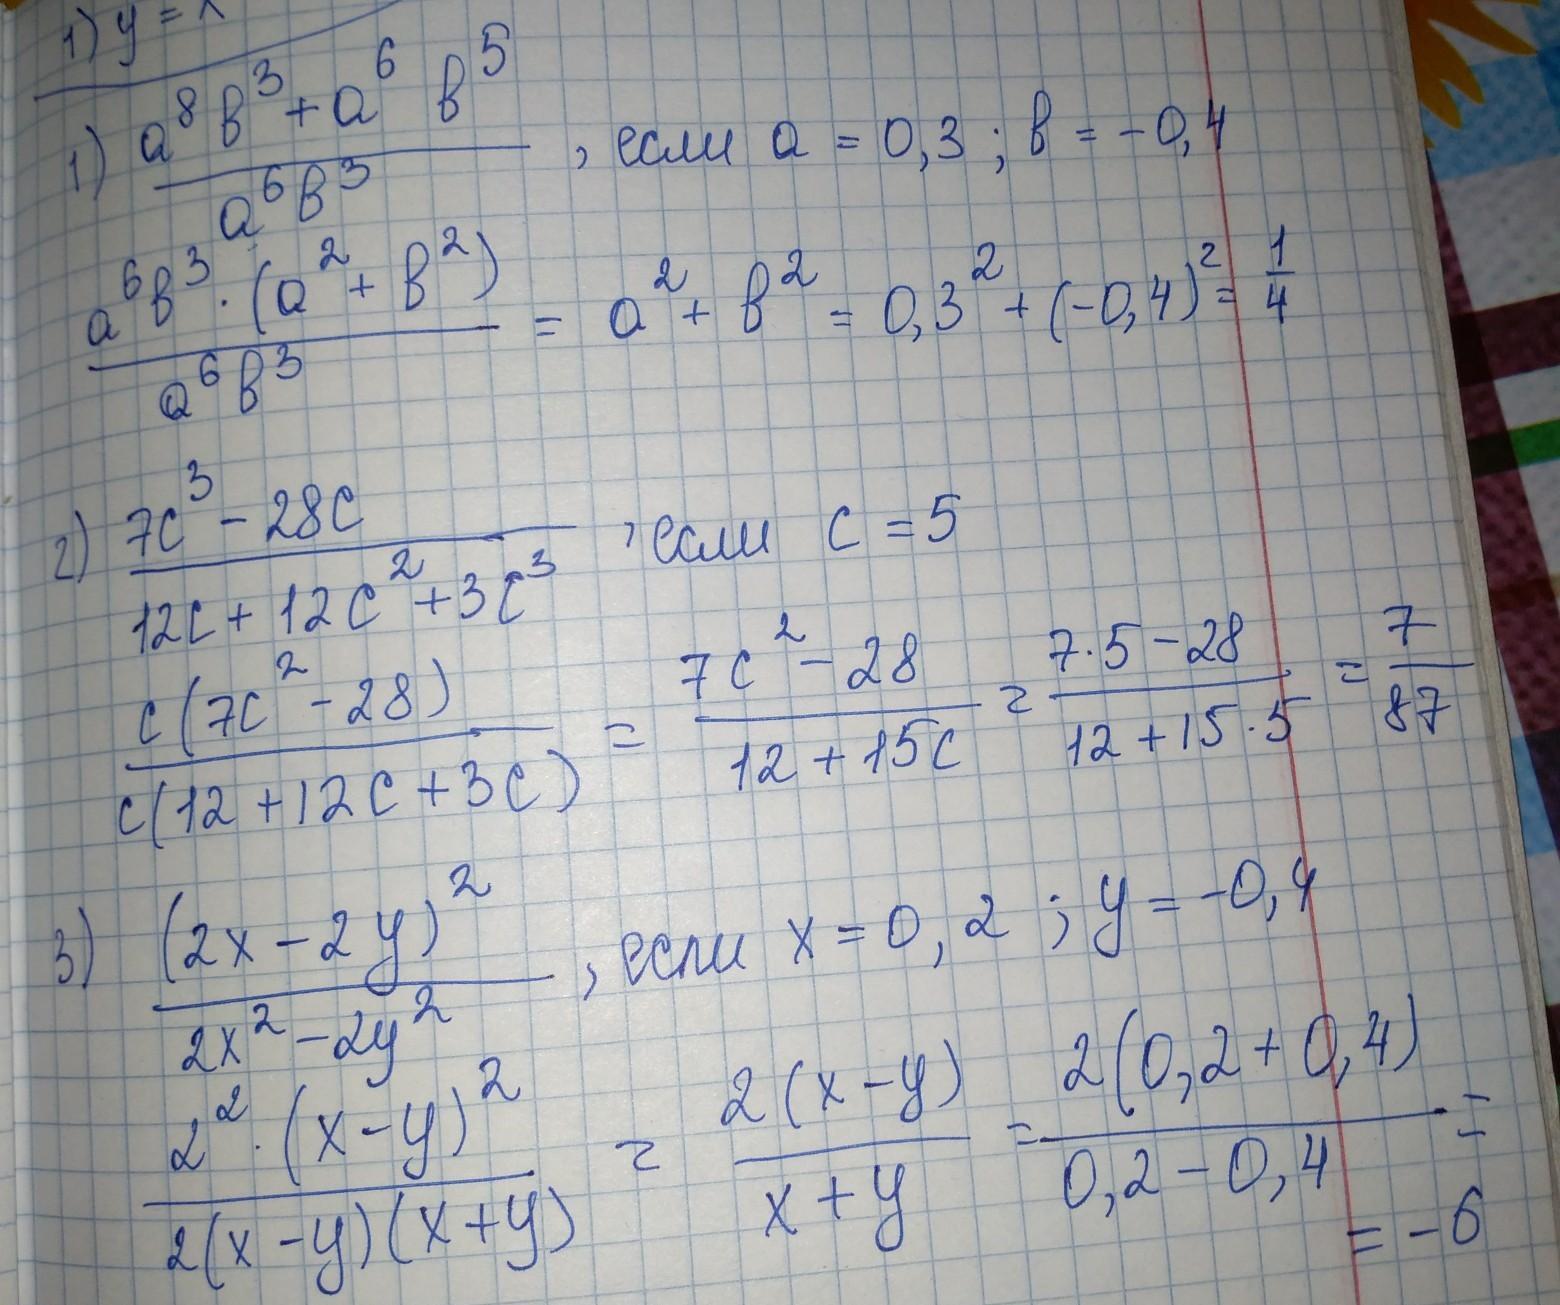 1) y = x
1) a⁸b³ + a⁶ b⁵ / a⁶b³ , если a = 0,3 ; b = -0,4
a⁶b³ · (a² + b²) / a⁶b³ = a² + b² = 0,3² + (-0,4)² = 1/4
2) 7c³ - 28c / 12c + 12c² + 3c³ , если c = 5
c(7c² - 28) / c(12 + 12c + 3c) = 7c² - 28 / 12 + 15c = 7·5 - 28 / 12 + 15·5 = 7/87
3) (2x - 2y)² / 2x² - 2y² , если x = 0,2 ; y = -0,4
2² · (x-y)² / 2(x-y)(x+y) = 2(x-y) / x+y = 2(0,2+0,4) / 0,2-0,4 =
= -6